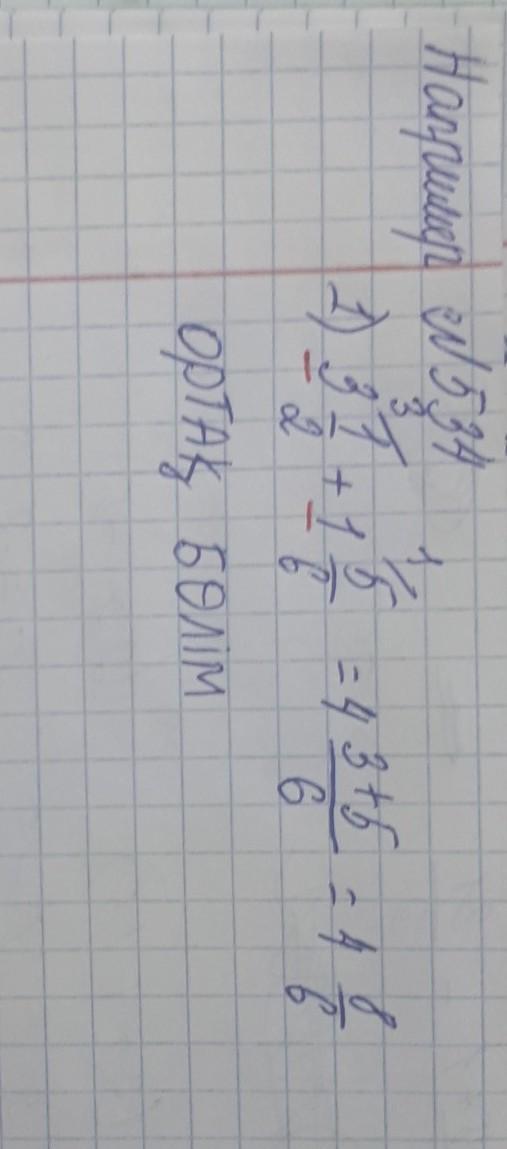 Например №534
1) 3 1/2 ³⁄ + 1 5/6 ¹⁄ = 4 3+5/6 = 4 8/6
ОРТАҚ БӨЛІМ